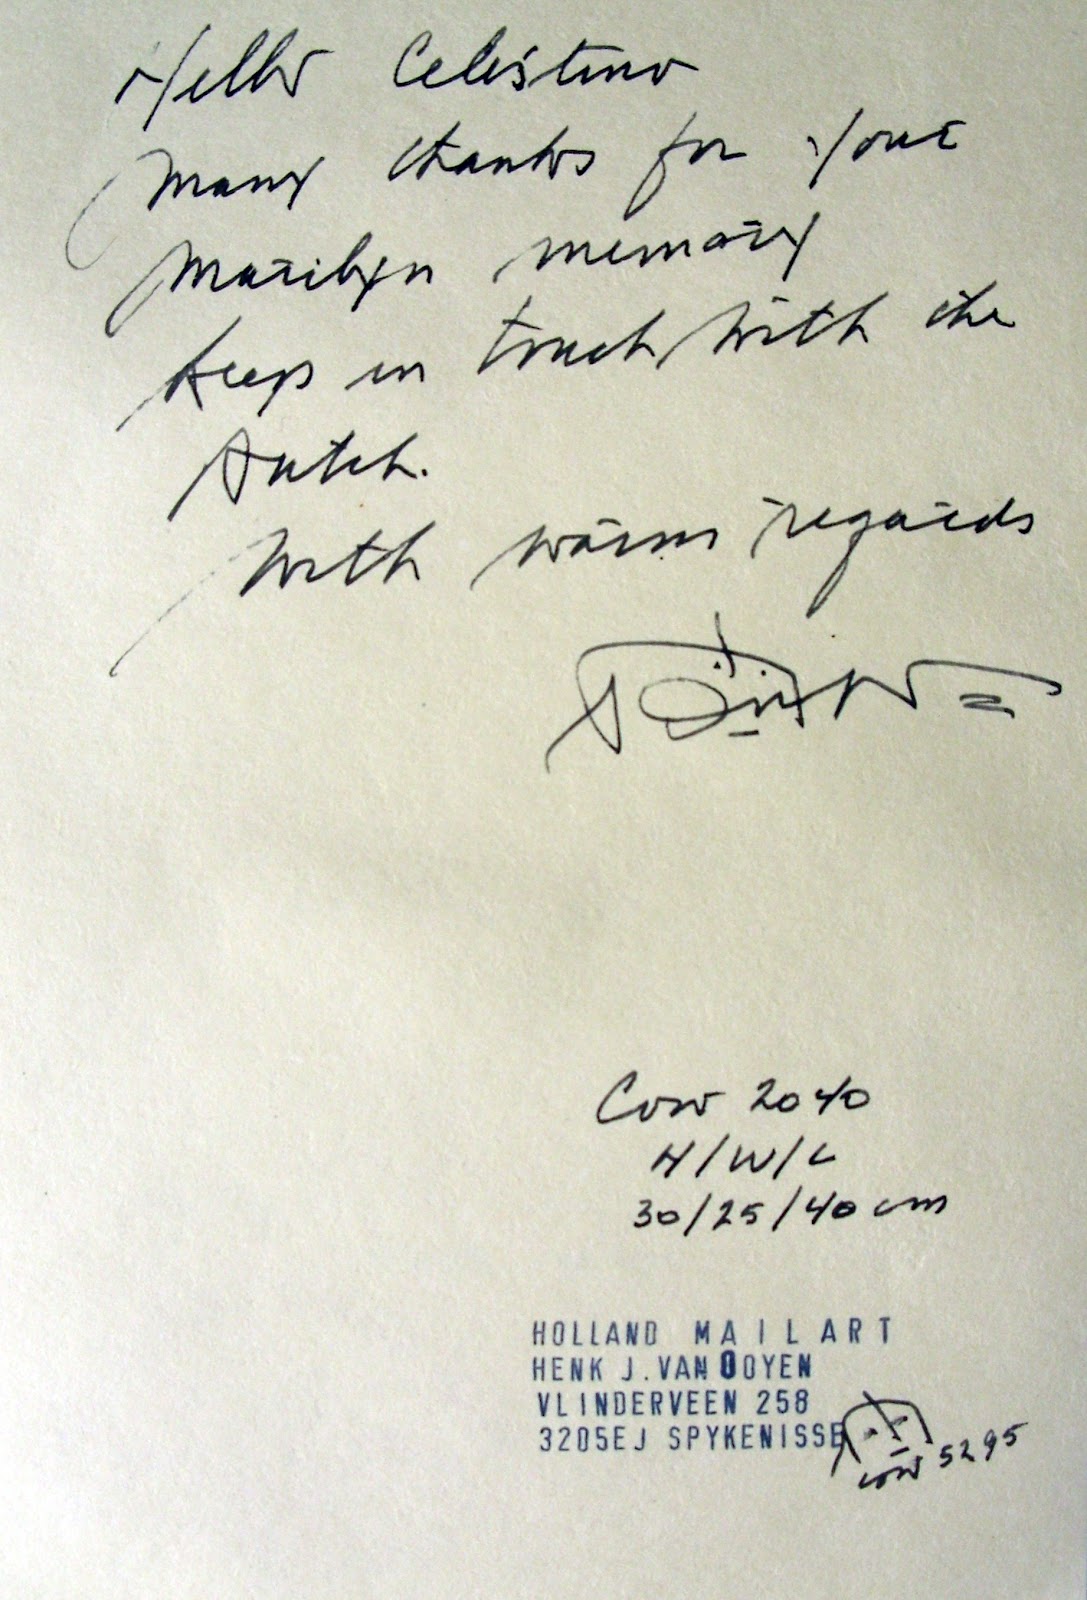 Hello Celestino
Many thanks for your
Marilyn memory
keep in touch with the
Dutch.
With warm regards
Cow 2040
H/W/L
30/25/40 cm
HOLLAND MAILART
HENK J. VAN OOYEN
VLINDERVEEN 258
3205EJ SPYKENISSE
cow 5295